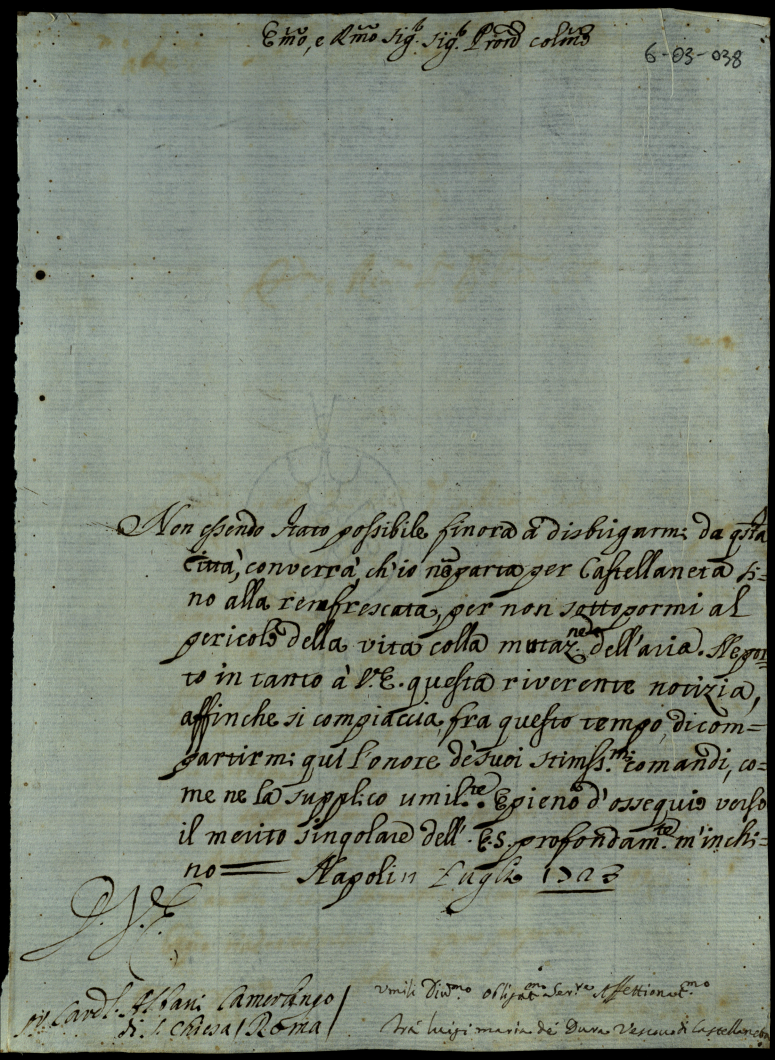 Em̃o, e Rm̃o Sig.r Sig.r Pr̃on Col̃mo
6-03-038
Non essendo stato possibile finora à disbrigarmi da q̃sta
Città, converrà, ch'io nõ parta per Castellaneta si=
no alla renfrescata, per non sottopormi al
pericolo della vita colla mutaz.ne dell'aria. Ne por=
to in tanto à V.E. questa riverente notizia,
affinche si compiaccia, fra questo tempo, di com=
partirmi quì l'onore de suoi stimss.mi comandi, co=
me ne la supplico umil.te. E pieno d'ossequio verso
il merito singolare dell' E.S. profondam.te m'inchi=
no = Napoli 11 Luglio 1723
D. V. E.
Card.l Albani Camerlengo
di S. Chiesa / Roma /
Umil.i Div.mo Obligat.mo Ser.re Affettionat.mo
frà Luigi Maria de Dura Vescovo di Castellaneta